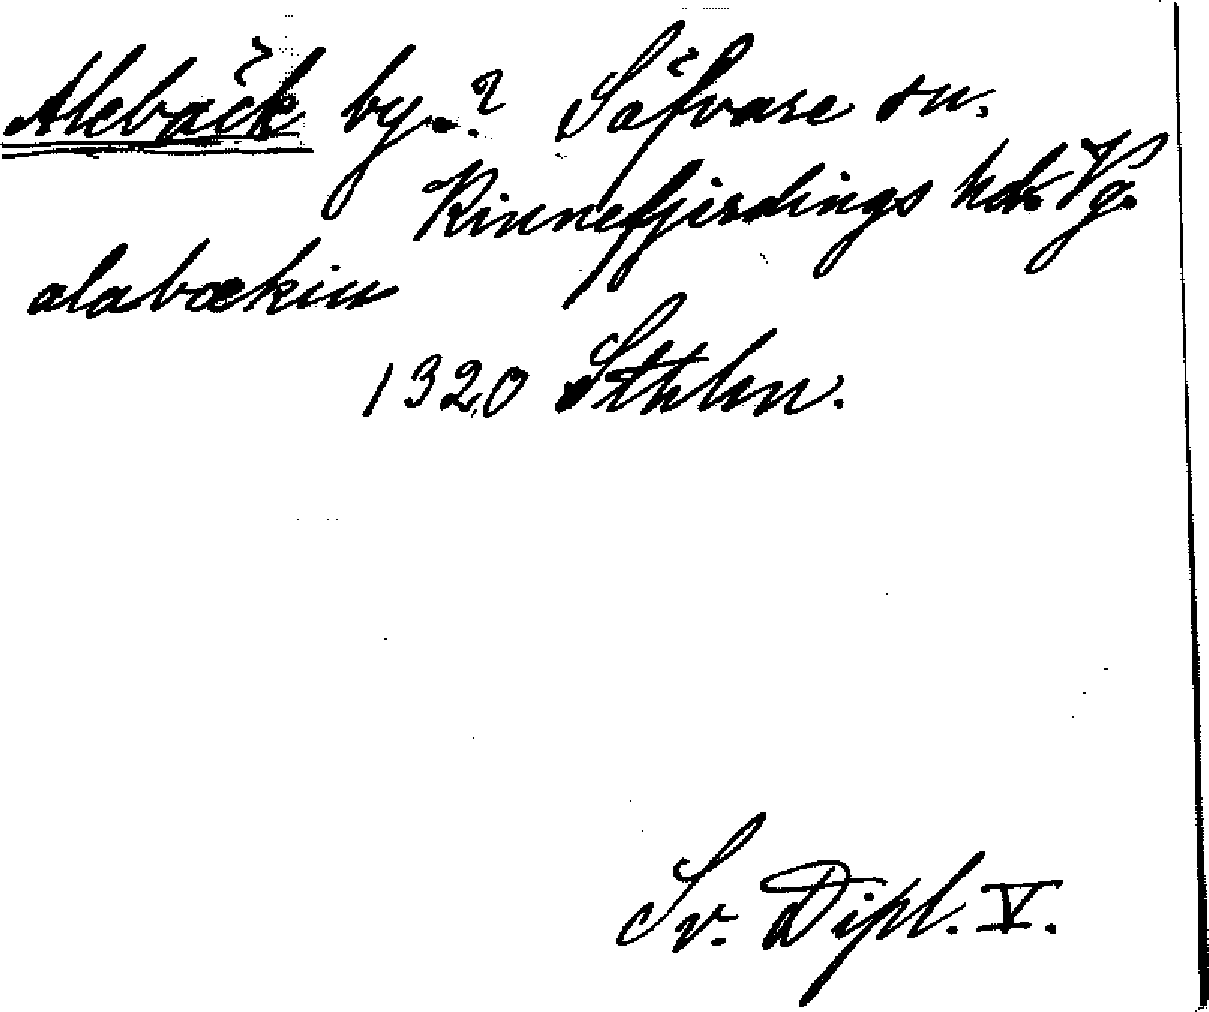 Alebäck by.? Säfvare sn.
Kinnefjerdings hd. Vg.
alabækin
1320 Sthlm.
Sv. Dipl. V.